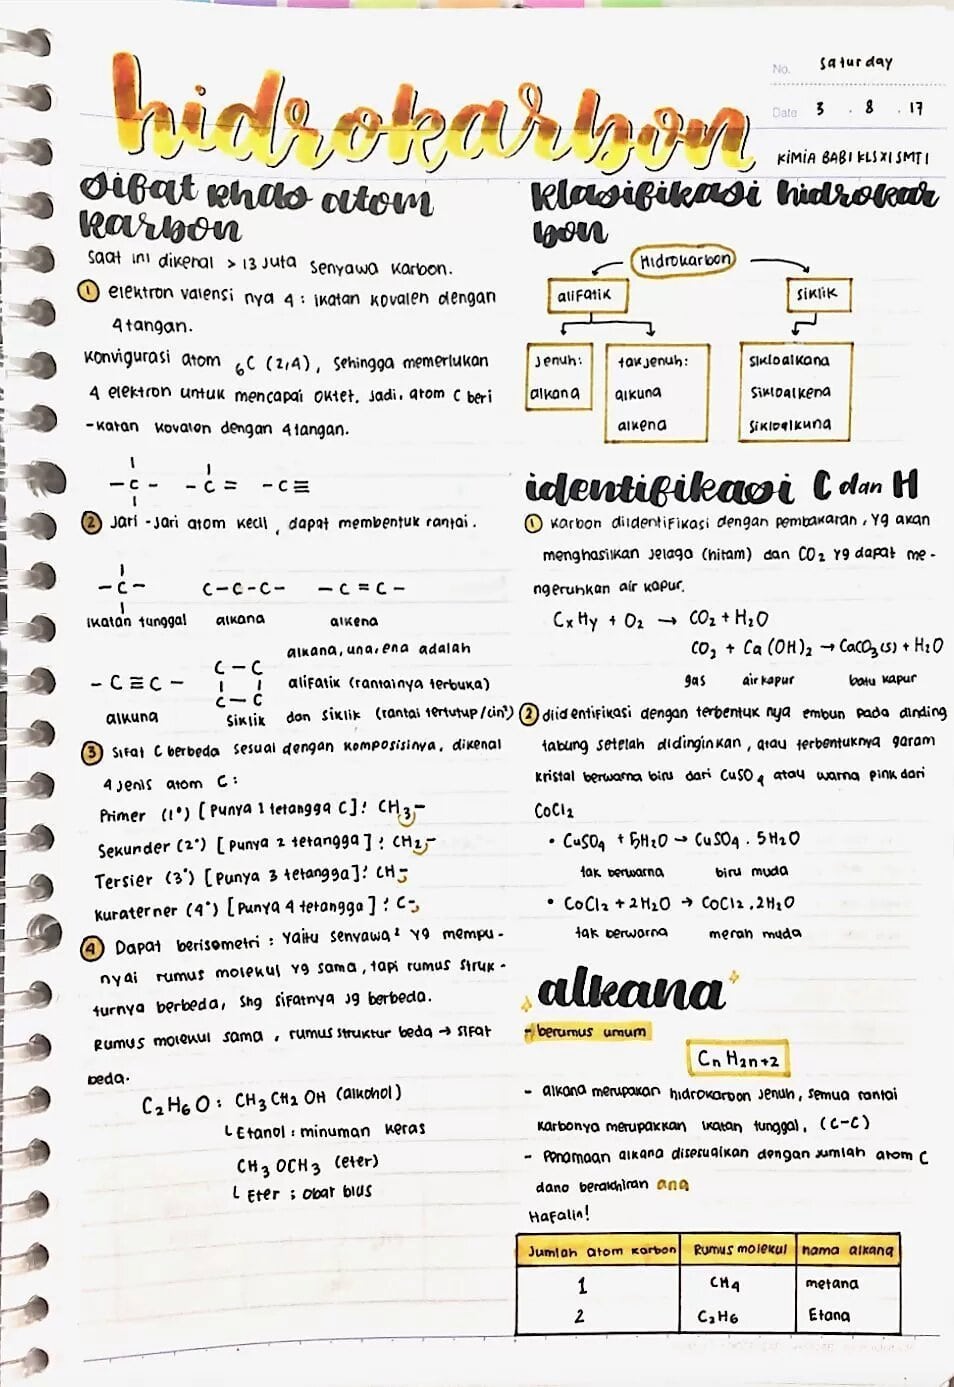 No. Saturday
Date 3 . 8 . 17
KIMIA BAB I KLS XI SMT I
hidrokarbon
Sifat khas atom
karbon
Saat ini dikenal > 13 Juta Senyawa Karbon.
1 elektron valensi nya 4 : ikatan kovalen dengan
4 tangan.
Konvigurasi atom ₆C (2,4), Sehingga memerlukan
4 elektron untuk mencapai oktet. Jadi, atom C beri
-katan kovalen dengan 4 tangan.
-C- -C= -C≡
2 Jari-Jari atom kecil, dapat membentuk rantai.
-C- C-C-C- -C=C-
ikatan tunggal alkana alkena
-C≡C- C-C
C-C
alkuna Siklik
alkana, una, ena adalah
alifatik (rantainya terbuka)
dan siklik (rantai tertutup/cin²)
3 Sifat C berbeda sesuai dengan komposisinya, dikenal
4 jenis atom C:
Primer (1°) [Punya 1 tetangga C]: CH₃-
Sekunder (2°) [Punya 2 tetangga]: CH₂-
Tersier (3°) [Punya 3 tetangga]: CH-
Kuraterner (4°) [Punya 4 tetangga]: C-
4 Dapat berisometri : Yaitu senyawa² yg mempu-
nyai rumus molekul yg sama, tapi rumus struk-
turnya berbeda, shg sifatnya jg berbeda.
Rumus molekul sama, rumus struktur beda → sifat
beda.
C₂H₆O : CH₃CH₂OH (alkohol)
Etanol : minuman keras
CH₃OCH₃ (eter)
Eter : Obat bius
klasifikasi hidrokar
bon
Hidrokarbon
alifatik siklik
Jenuh:
alkana
tak jenuh:
alkuna
alkena
Sikloalkana
Sikloalkena
Sikloalkuna
identifikasi C dan H
1 Karbon diidentifikasi dengan pembakaran, yg akan
menghasilkan jelaga (hitam) dan CO₂ yg dapat me-
ngeruhkan air kapur.
CxHy + O₂ → CO₂ + H₂O
CO₂ + Ca(OH)₂ → CaCO₃(s) + H₂O
gas air kapur batu kapur
2 diidentifikasi dengan terbentuk nya embun pada dinding
tabung setelah didinginkan, atau terbentuknya garam
kristal berwarna biru dari CuSO₄ atau warna pink dari
CoCl₂
• CuSO₄ + 5H₂O → CuSO₄ . 5H₂O
tak berwarna biru muda
• CoCl₂ + 2H₂O → CoCl₂ . 2H₂O
tak berwarna merah muda
alkana
- berumus umum
CnH2n+2
- alkana merupakan hidrokarbon Jenuh, semua rantai
karbonya merupakkan ikatan tunggal, (C-C)
- Penamaan alkana disesuaikan dengan jumlah atom C
dano berakhiran ana
Hafalin!
Jumlah atom karbon Rumus molekul nama alkana
1 CH₄ metana
2 C₂H₆ Etana